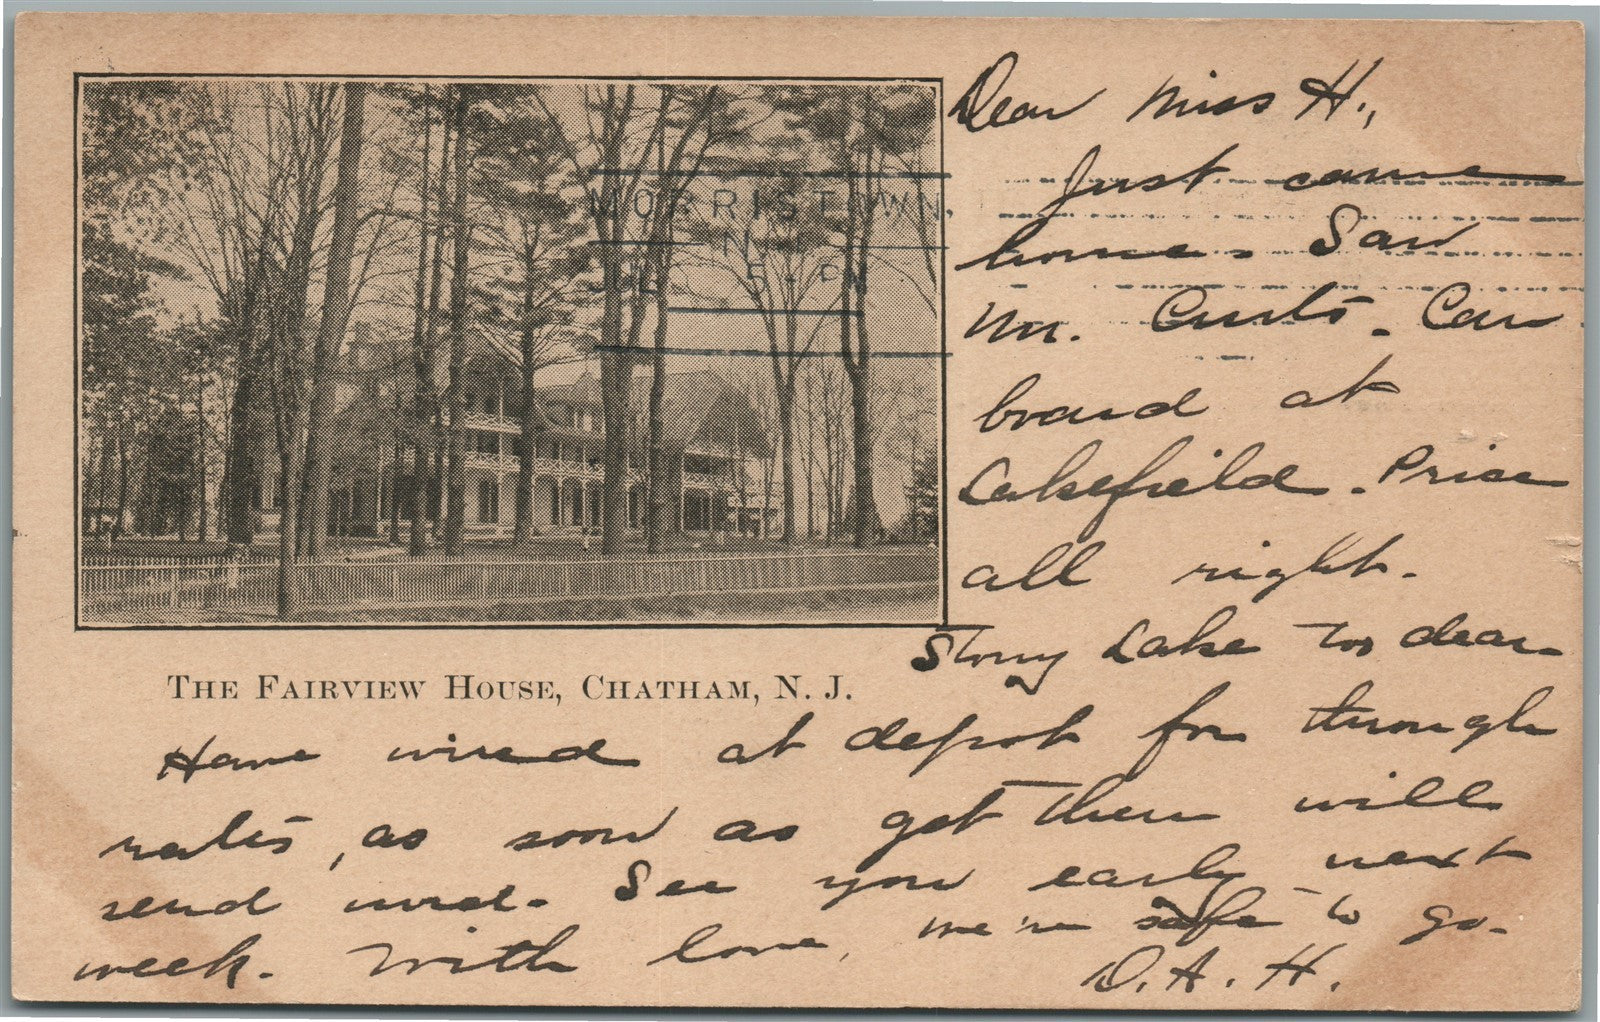 Dear Miss H.,
Just came
home. Saw
Mr. Curtis. Can
board at
Lakefield. Price
all right.
Stony Lake too dear.
MORRISTOWN,
N.
JUL 5-PM
THE FAIRVIEW HOUSE, CHATHAM, N. J.
Have wired at depot for through
rates, as soon as get them will
send word. See you early next
week. With love, we're safe to go.
D. A. H.